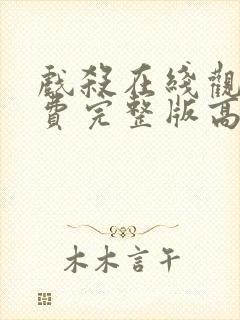 戲殺在线觀
費完整版高
木木言午